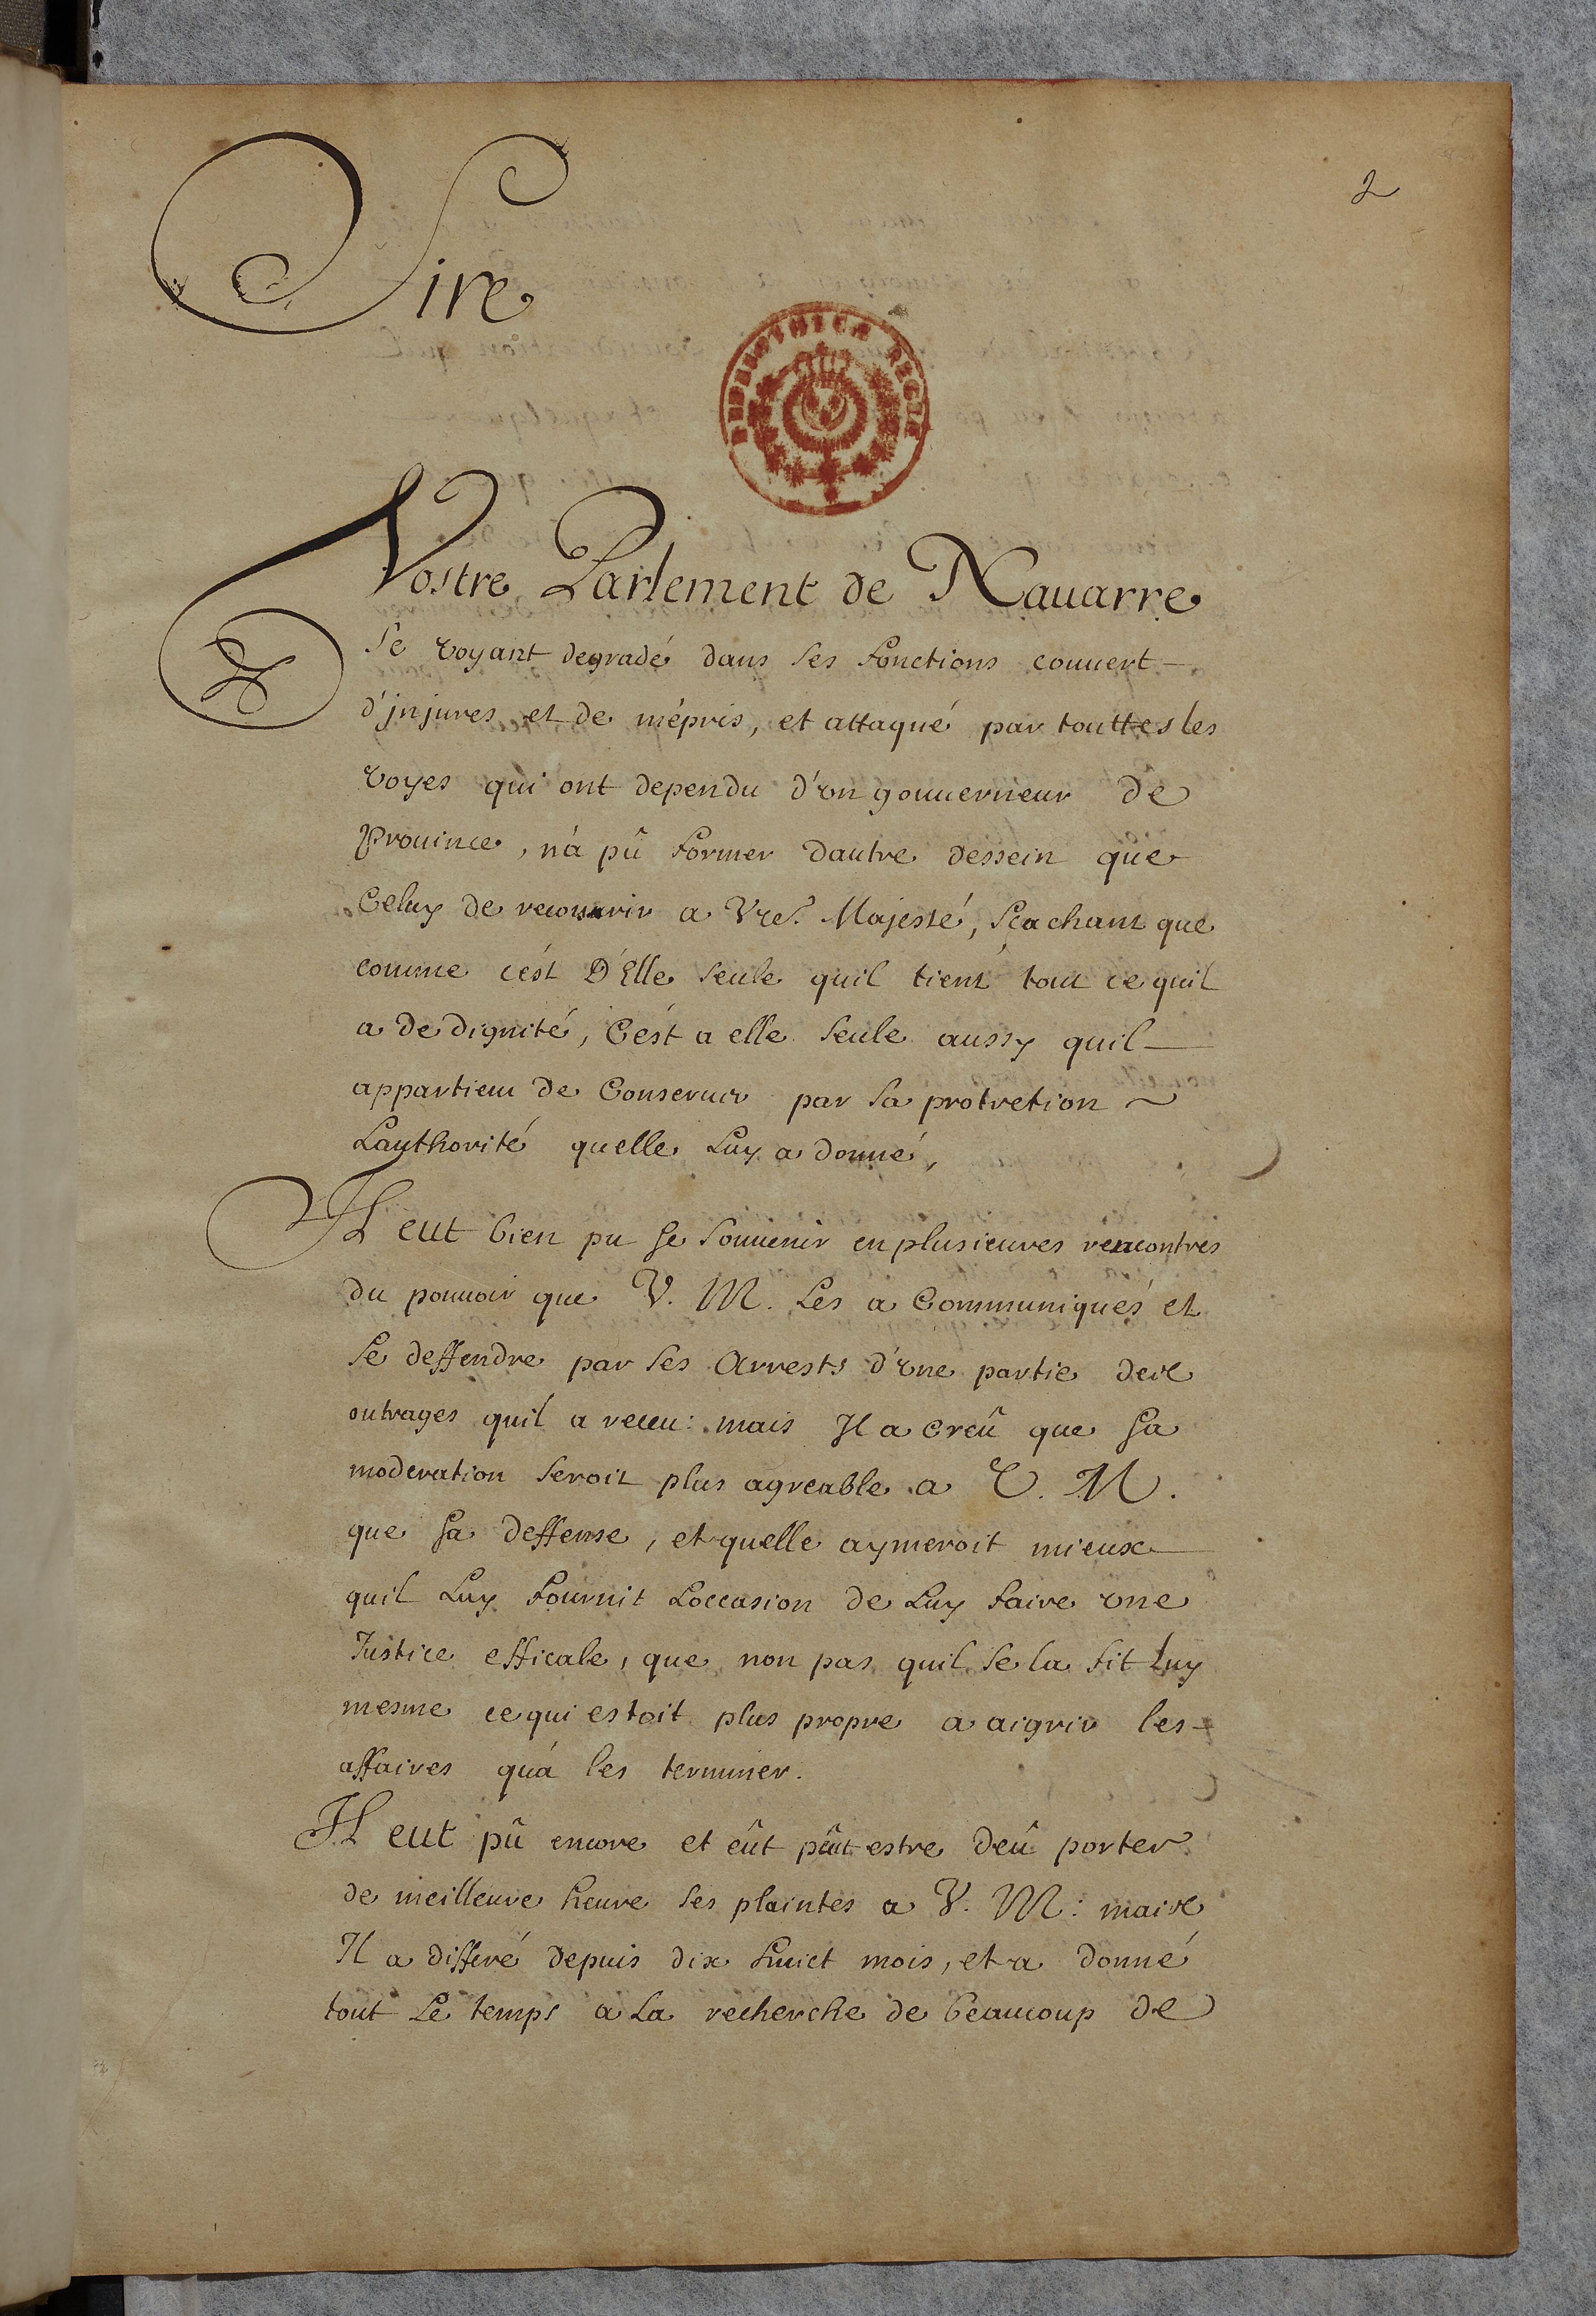 2
Sire
BIBLIOTHECÆ REGIÆ
Vostre Parlement de Nauarre
Se voyant degradé dans ses fonctions couuert
d'jnjures et de mépris, et attaqué par touttes les
voyes qui ont dependu d'vn gouuerneur de
Prouince, n'a pû former dautre dessein que
Celuy de recourir a Vre. Majesté, Scachant que
comme c'ést D'Elle seule quil tient tout ce quil
a de dignité, C'ést a elle seule aussy quil
appartient de Conseruer par sa protretion
Lauthorité quelle Luy a donné,
Il eut bien pu se souuenir en plusieures rencontres
du pouuoir que V. M. Les a Communiqués et
se deffendre par ses Arrests d'vne partie des
outrages quil a receu: mais Il a creû que sa
moderation seroit plus agreable a V. M.
que sa deffense, et quelle aymeroit mieux
quil Luy fournit Loccasion de Luy faire vne
Justice efficale, que non pas quil se la fit Luy
mesme ce qui estoit plus propre a aigrir les
affaires qu'a les terminer.
Il eut pû encore et eût peut estre deû porter
de meilleure heure ses plaintes a V. M: mais
Il a differé depuis dix huict mois, et a donné
tout Le temps a La recherche de beaucoup de